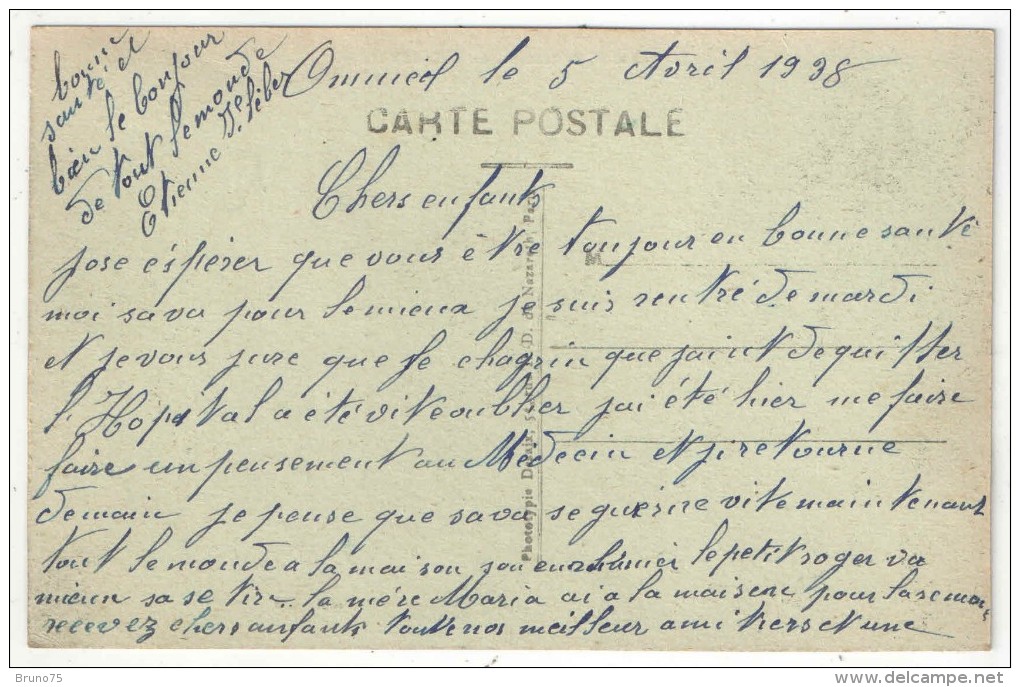 le 5 Avril 1938
CARTE POSTALE
Chers enfants
jose éspérer que vous être toujour en bonne santé
moi sava pour lemieux je suis rentré de mardi
et je vous jure que le chagrin que jai ut de quitter
l'Hopital a été vite oublier jai été hier me faire
faire un pensement au Médecin et ji retourne
demain je pense que sava se guerire vite maintenant
tout le monde a la maison son enrhumer le petit roger va
mieux sa se tire la mére Maria ai a la maison pour la semaine
recevez chers enfants toute nos meilleur amitiers et une
bonne
santé et
bien le bonjour
de tout le monde
Etienne
Phototypie D. de Nazareth, Paris
Bruno75
delcampe.net